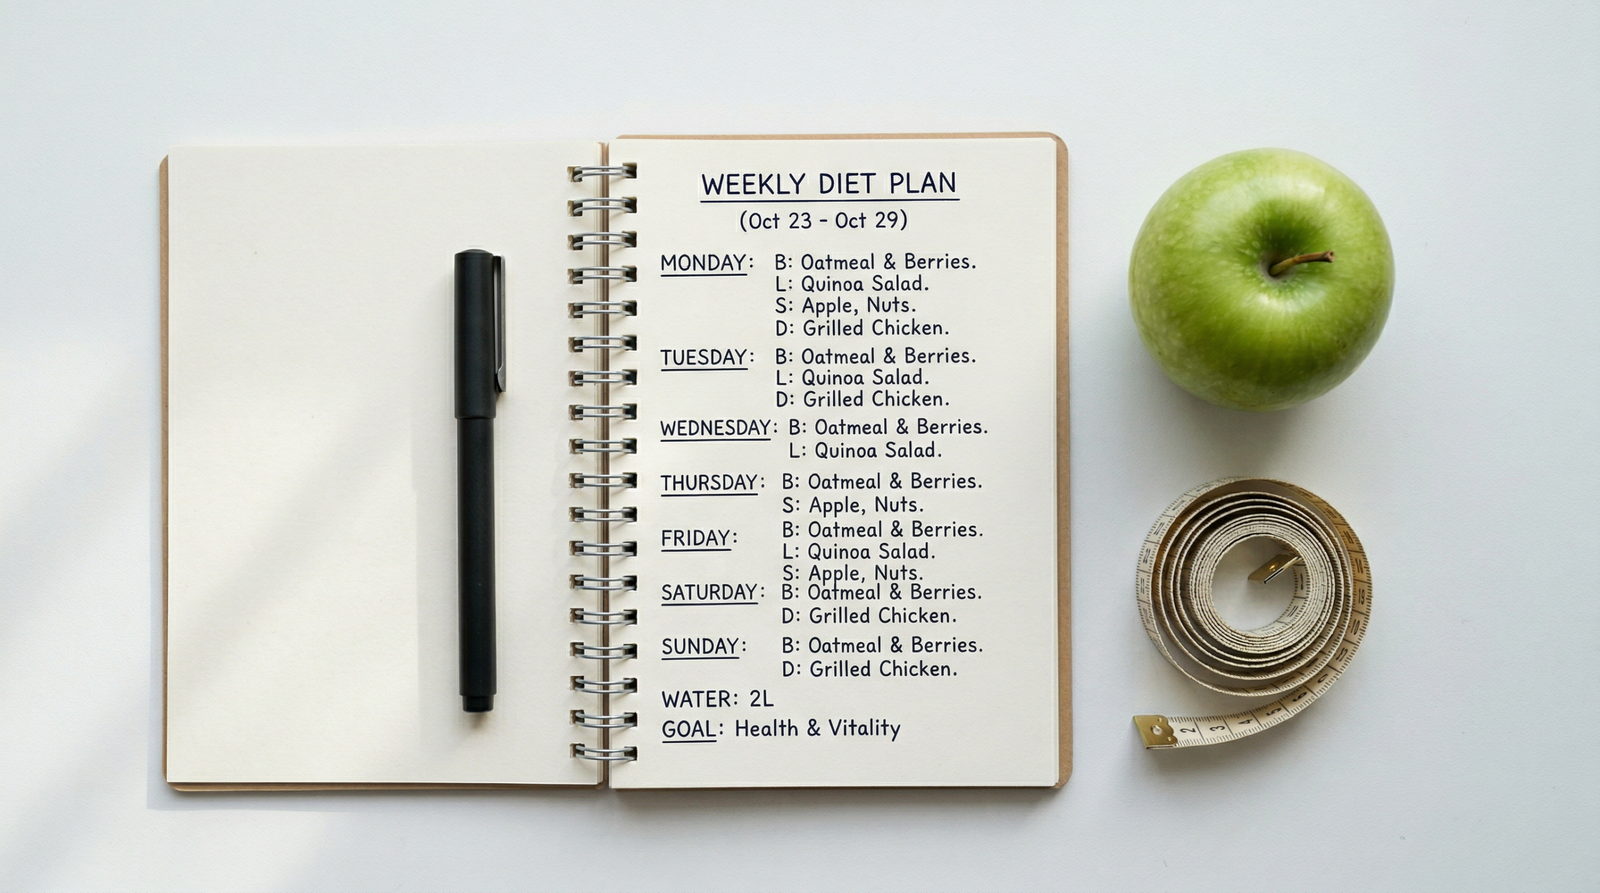 WEEKLY DIET PLAN
(Oct 23 - Oct 29)
MONDAY: B: Oatmeal & Berries.
L: Quinoa Salad.
S: Apple, Nuts.
D: Grilled Chicken.
TUESDAY: B: Oatmeal & Berries.
L: Quinoa Salad.
D: Grilled Chicken.
WEDNESDAY: B: Oatmeal & Berries.
L: Quinoa Salad.
THURSDAY: B: Oatmeal & Berries.
S: Apple, Nuts.
FRIDAY: B: Oatmeal & Berries.
L: Quinoa Salad.
S: Apple, Nuts.
SATURDAY: B: Oatmeal & Berries.
D: Grilled Chicken.
SUNDAY: B: Oatmeal & Berries.
D: Grilled Chicken.
WATER: 2L
GOAL: Health & Vitality
2 3 4 5